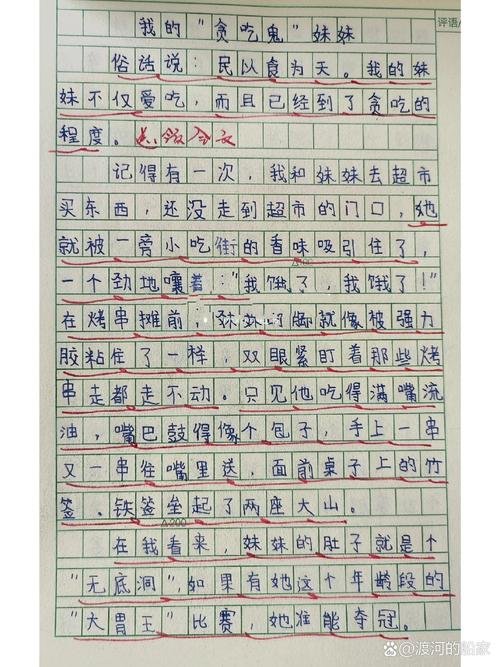 评语
我的“贪吃鬼”妹妹
俗话说：民以食为天。我的妹
妹不仅爱吃，而且已经到了贪吃的
程度。
记得有一次，我和妹妹去超市
买东西，还没走到超市的门口，她
就被一旁小吃街的香味吸引住了，
△100
一个劲地嚷着，：“我饿了，我饿了！”
在烤串摊前，妹妹的脚就像被强力
胶粘住了一样，双眼紧盯着那些烤
串走都走不动。只见他吃得满嘴流
油，嘴巴鼓得像个包子，手上一串
又一串往嘴里送，面前桌子上的竹
签、铁签垒起了两座大山。
△200
在我看来，妹妹的肚子就是个
“无底洞”，如果有她这个年龄段的
“大胃王”比赛，她准能夺冠。
@渡河的船家